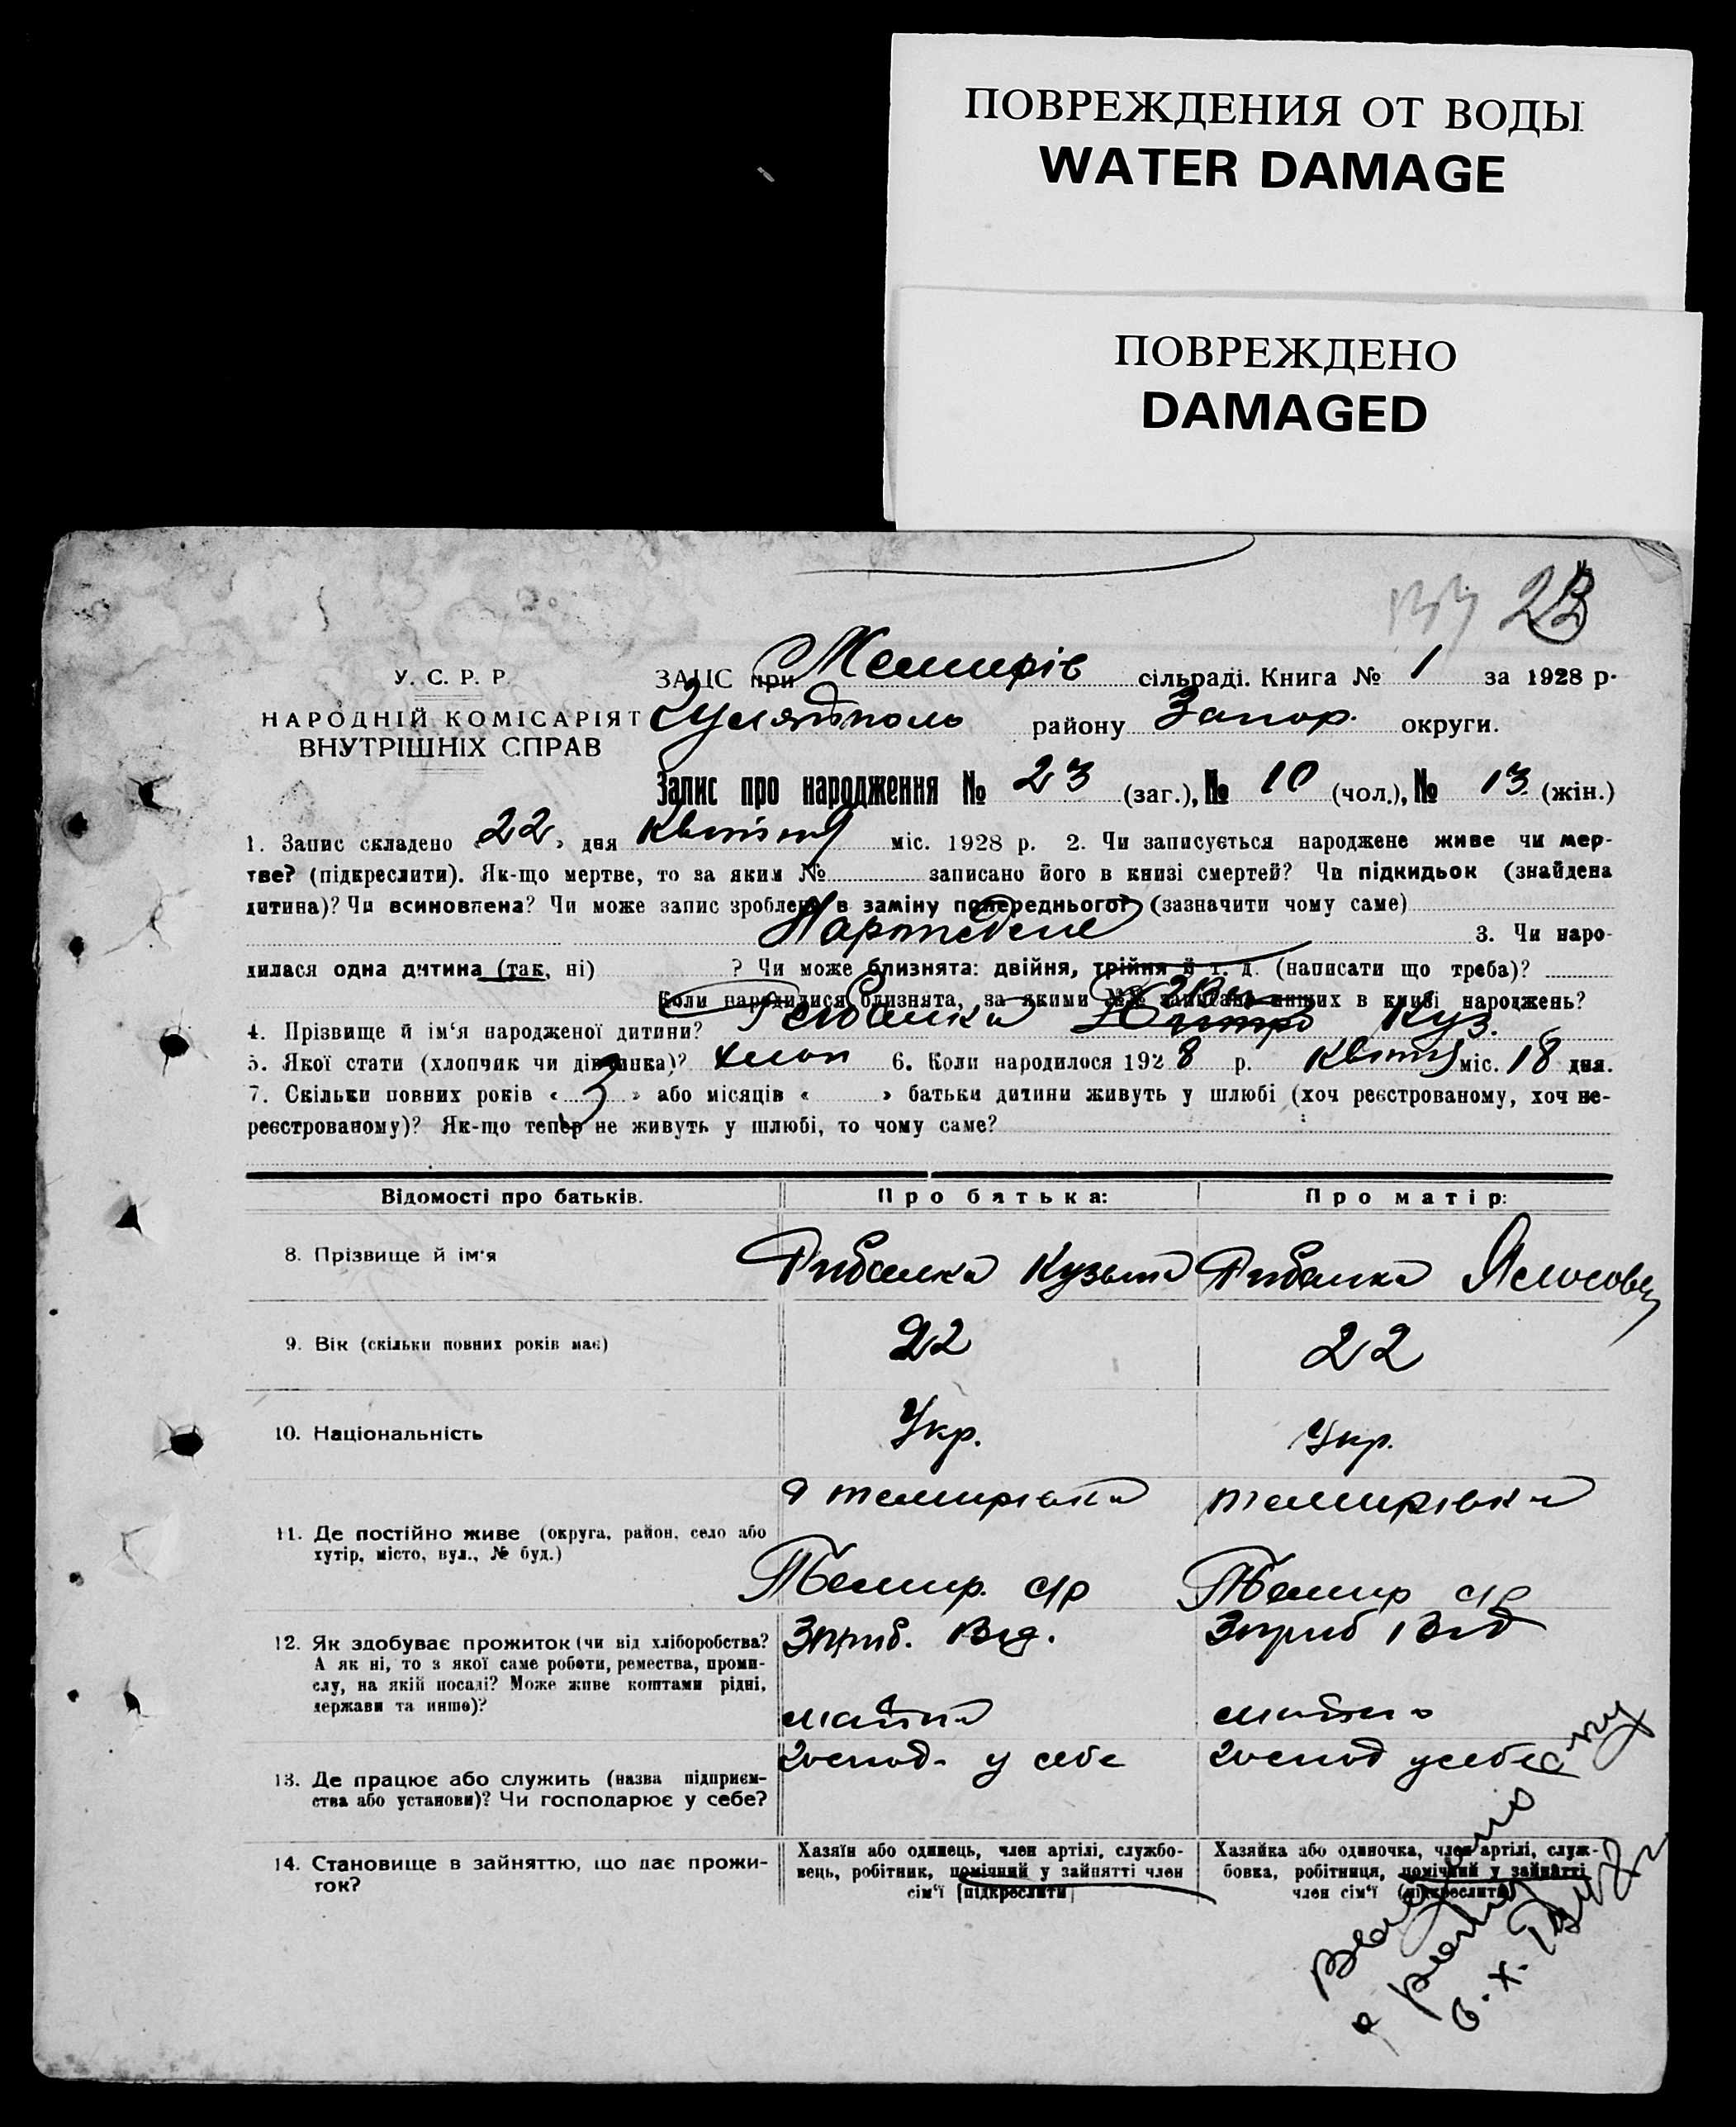 ПОВРЕЖДЕНИЯ ОТ ВОДЫ
WATER DAMAGE
ПОВРЕЖДЕНО
DAMAGED
23
У. С. Р. Р.
НАРОДНІЙ КОМІСАРІЯТ
ВНУТРІШНІХ СПРАВ
ЗАЦС при Темирів сільраді. Книга № 1 за 1928 р.
Гуляйполь району Запор. округи.
Запис про народження № 23 (заг.), № 10 (чол.), № 13 (жін.)
1. Запис складено «22» дня квітня міс. 1928 р. 2. Чи записується народжене живе чи мер-
тве? (підкреслити). Як-що мертве, то за яким № записано його в книзі смертей? Чи підкидьок (знайдена
дитина)? Чи всиновлена? Чи може запис зроблено в заміну попереднього? (зазначити чому саме)
3. Чи наро-
дилася одна дитина (так, ні) ? Чи може близнята: двійня, трійня й т. д. (написати що треба)?
Коли народилися близнята, за якими №№ записано инших в книзі народжень?
4. Прізвище й ім'я народженої дитини? Рибалка Дмитро Куз.
5. Якої стати (хлопчик чи дівчинка)? хлоп 6. Коли народилося 1928 р. квітня міс. 18 дня.
7. Скільки повних років «3» або місяців « » батьки дитини живуть у шлюбі (хоч реєстрованому, хоч не-
реєстрованому)? Як-що тепер не живуть у шлюбі, то чому саме?
Відомості про батьків. Про батька: Про матір:
8. Прізвище й ім'я Рибалка Кузьма Рибалка
9. Вік (скільки повних років має) 22 22
10. Національність Укр. Укр.
11. Де постійно живе (округа, район, село або
хутір, місто, вул., № буд.)
с темирівка темирівка
Темир. с/р Темир с/р
12. Як здобуває прожиток (чи від хліборобства?
А як ні, то з якої саме роботи, ремества, проми-
слу, на якій посаді? Може живе коштами рідні,
держави та инше)?
майна майна
13. Де працює або служить (назва підприєм-
ства або установи)? Чи господарює у себе?
господ. у себе господ у себе
14. Становище в зайняттю, що дає прожи-
ток?
Хазяїн або одинець, член артілі, службо-
вець, робітник, помічний у зайнятті член
сім'ї (підкреслити)
Хазяйка або одиночка, член артілі, служ-
бовка, робітниця, помічний у зайнятті
член сім'ї (підкреслити)